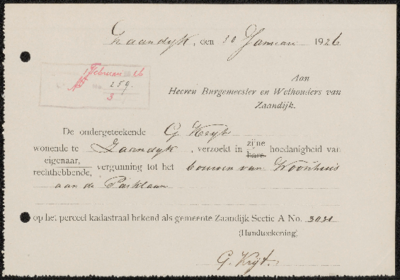 Zaandijk, den 30 Januari 1926
Februari 26
No. 259.
3
Aan
Heeren Burgemeester en Wethouders van
Zaandijk.
De ondergeteekende G Kuyt
wonende te Zaandijk, verzoekt in zijne hoedanigheid van
haar
eigenaar,
rechthebbende, vergunning tot het bouwen van Woonhuis
aan de Parklaan
op het perceel kadastraal bekend als gemeente Zaandijk Sectie A No. 3021
(Handteekening)
G. Kuyt.